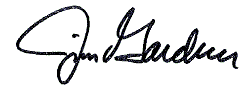 Jim Gardner